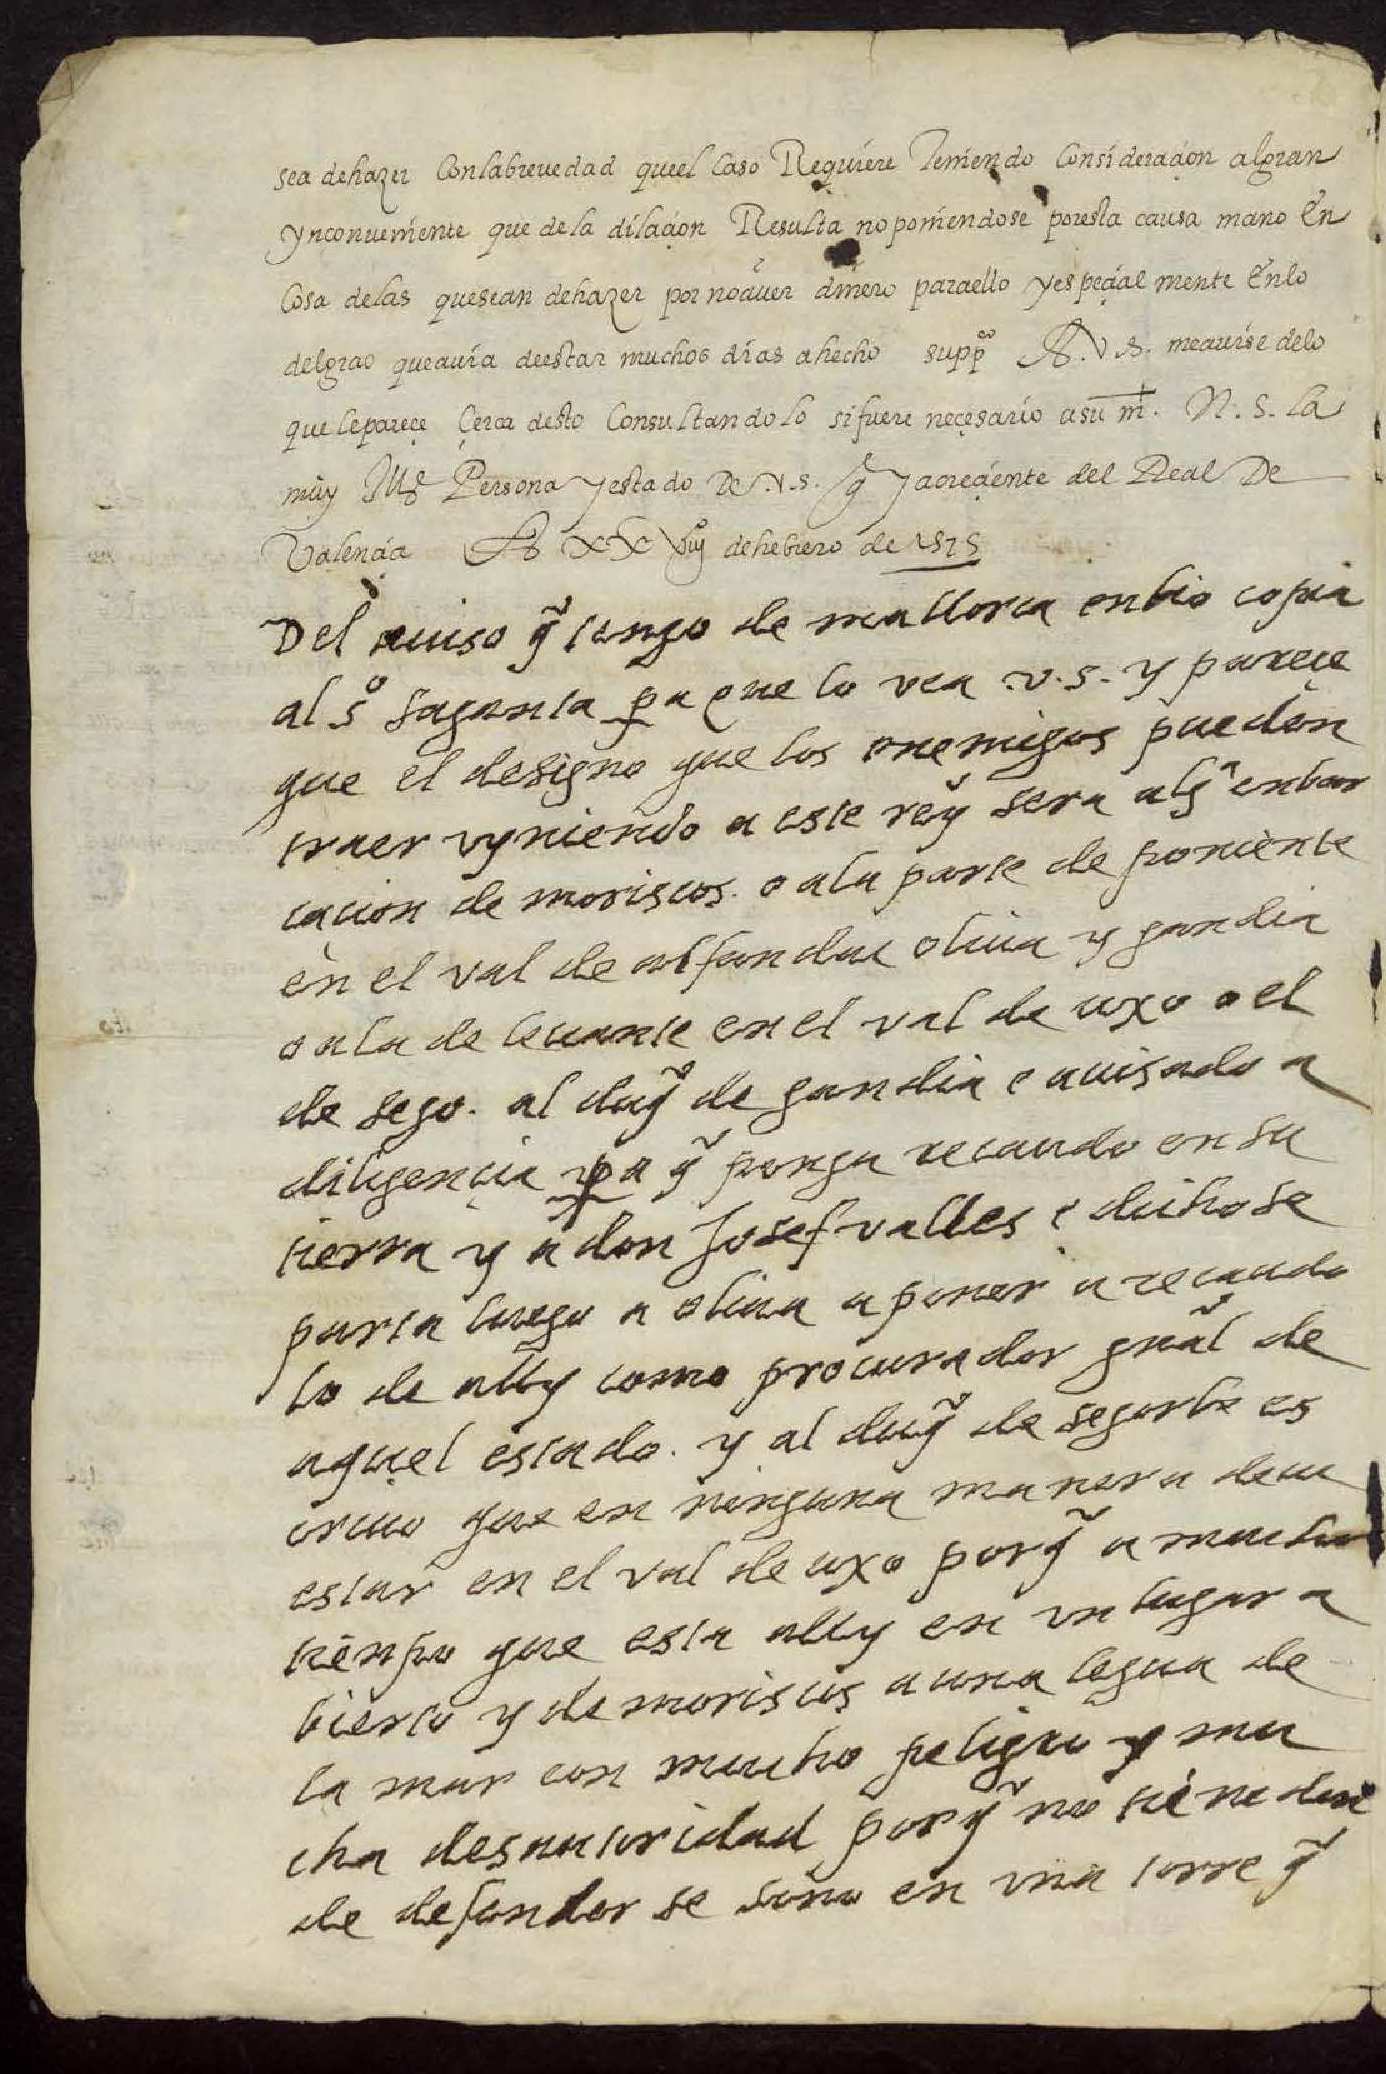 sea de hazer Con la brevedad que el Caso Requiere Teniendo Consideraçion al gran
ynconveniente que de la dilaçion Resulta no poniendose por esta causa mano En
Cosa de las que sean de hazer por no aver dinero para ello y espeçialmente En lo
del grao que avia de estar muchos dias a hecho supp.co A.V.S. me avise de lo
que le pareçe Çerca desto Consultandolo si fuere neçesario a su m.t N. S. la
muy Ill.e Persona y estado De .V.S. g.e y acreçiente del Real De
Valençia A XX viij.o de hebrero de 1575
Del auiso q̃ tengo de mallorca enbio copia
al s.or saganta pa que lo vea .v.s. y pareçe
que el designo que los enemigos pueden
traer vyniendo a este reyº sera algª enbar
cacion de moriscos. o a la parte de poniente
en el val de alfandac oliua y gandia
o a la de leuante en el val de uxo o el
de sego. al duq̃ de gandia e auisado a
diligençia pa q̃ ponga recaudo en su
tierra y a don Josef valles e dicho se
parta luego a oliua a poner a recaudo
lo de ally como procurador gñal de
aquel estado. y al duq̃ de segorbe es
criuo que en ninguna manera deue
estar en el val de uxo porq̃ a mucho
tienpo que esta ally en vn lugar a
bierto y de moriscos a una legua de
la mar con mucho peligro y mu
cha desautoridad porq̃ no tiene don
de defender se sino en vna torre q̃